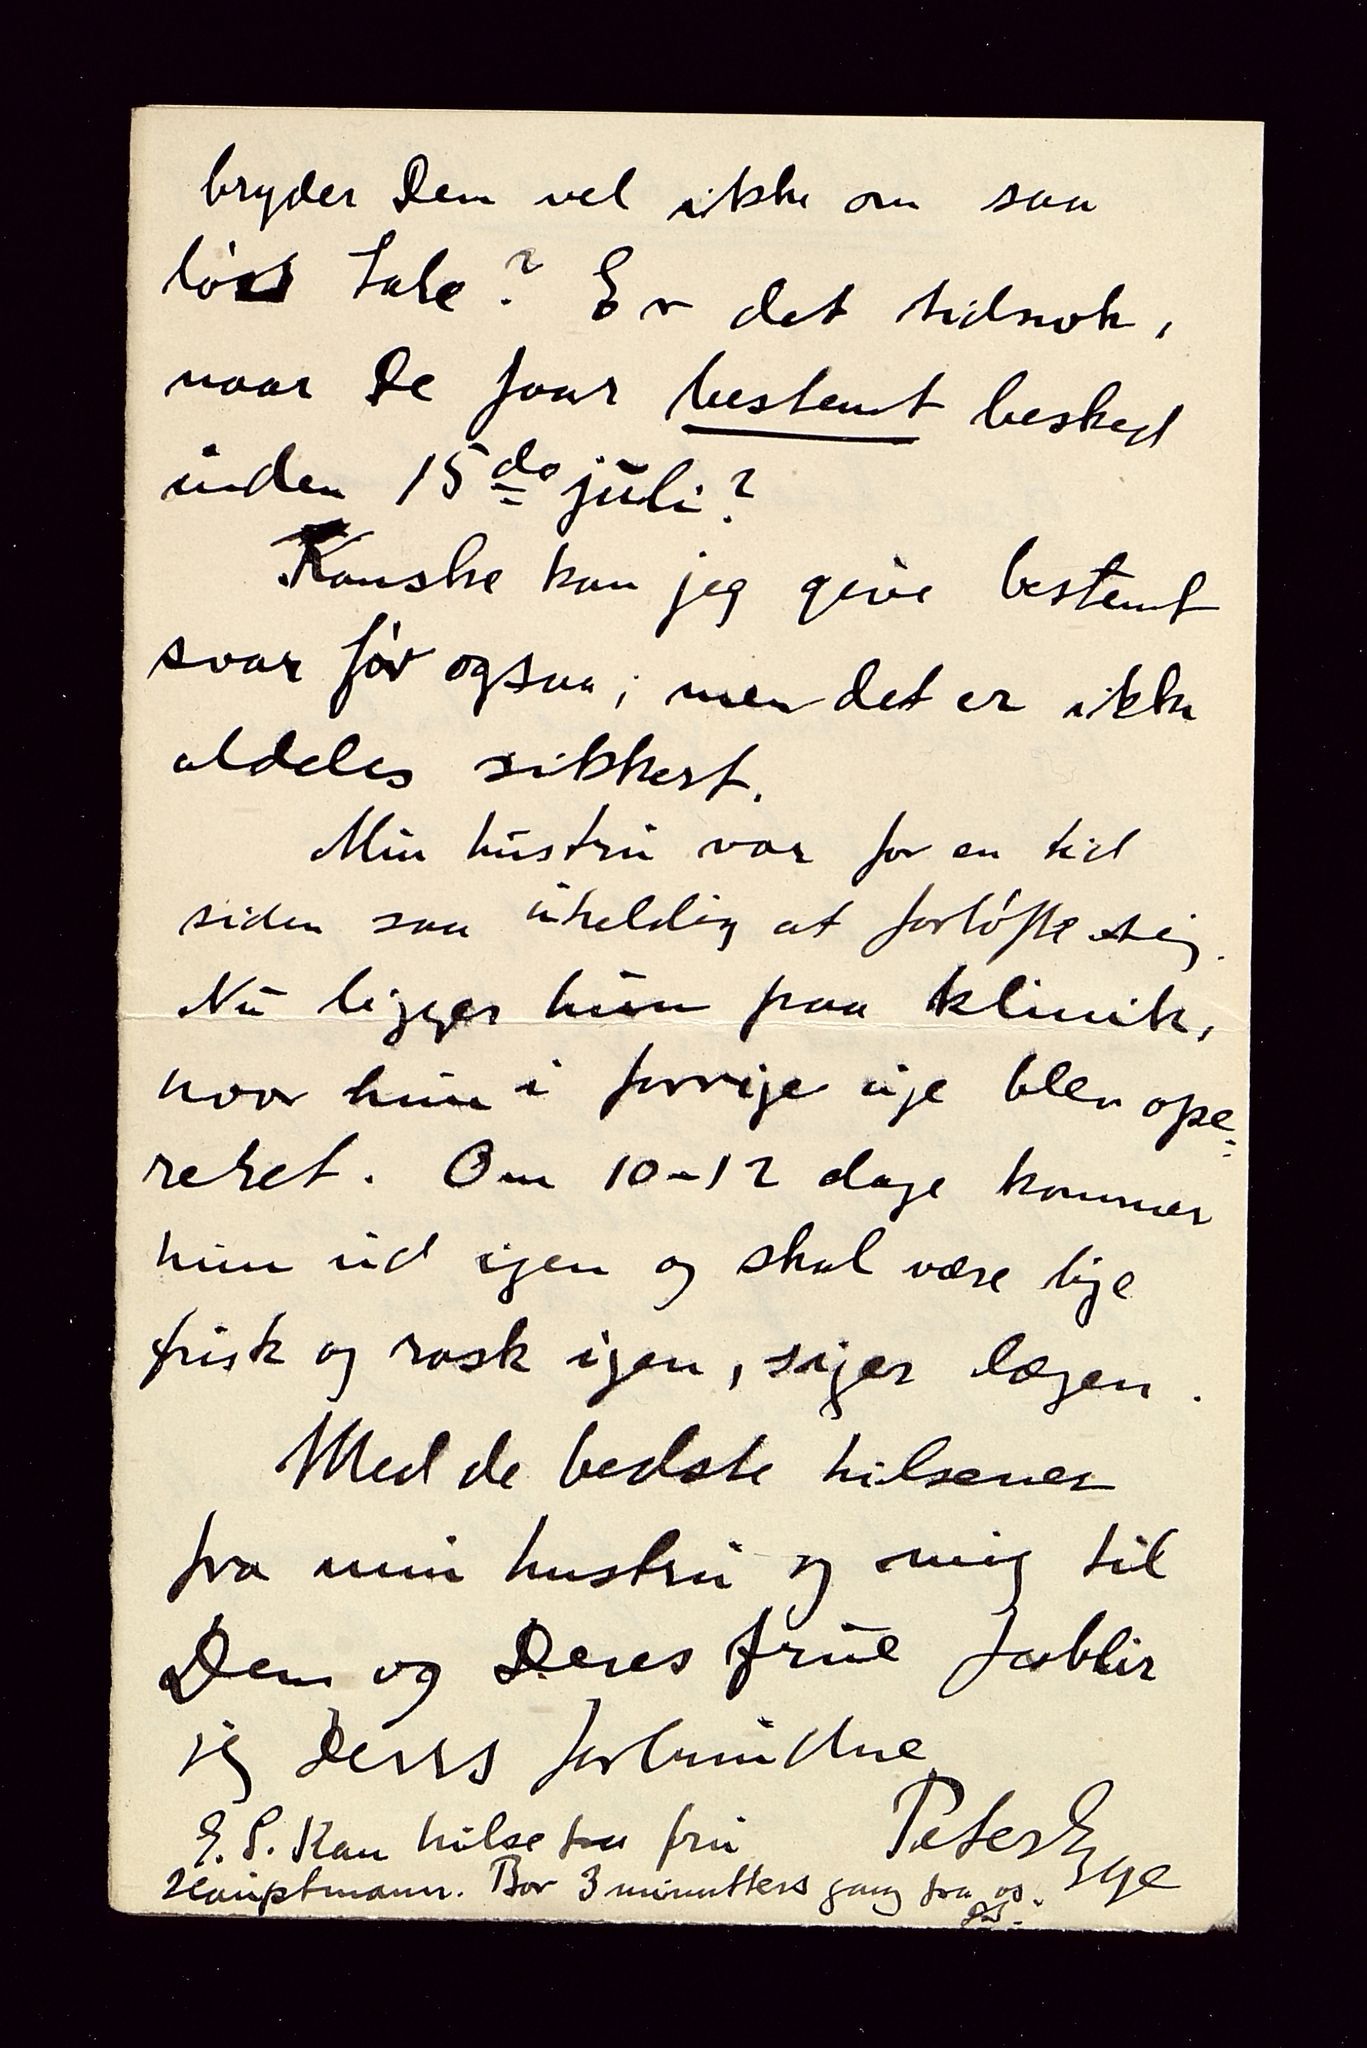 bryder Dem vel ikke om saa
løst tale? Er det tidsnok,
naar De faar bestemt besked
inden 15de juli?
Kanske kan jeg give bestemt
svar før ogsaa; men det er ikke
aldeles sikkert.
Min hustru var for en tid
siden saa uheldig at forløfte sig.
Nu ligger hun paa klinik,
hvor hun i forrige uge blev ope-
reret. Om 10-12 dage kommer
hun ud igen og skal være lige
frisk og rask igen, siger lægen.
Med de bedste hilsener
fra min hustru og mig til
Dem og Deres frue forblir
jeg Deres forbundne
Peter Egge
E. S. Kan hilse fra fru
Hauptmann. Bor 3 minutters gang fra os.